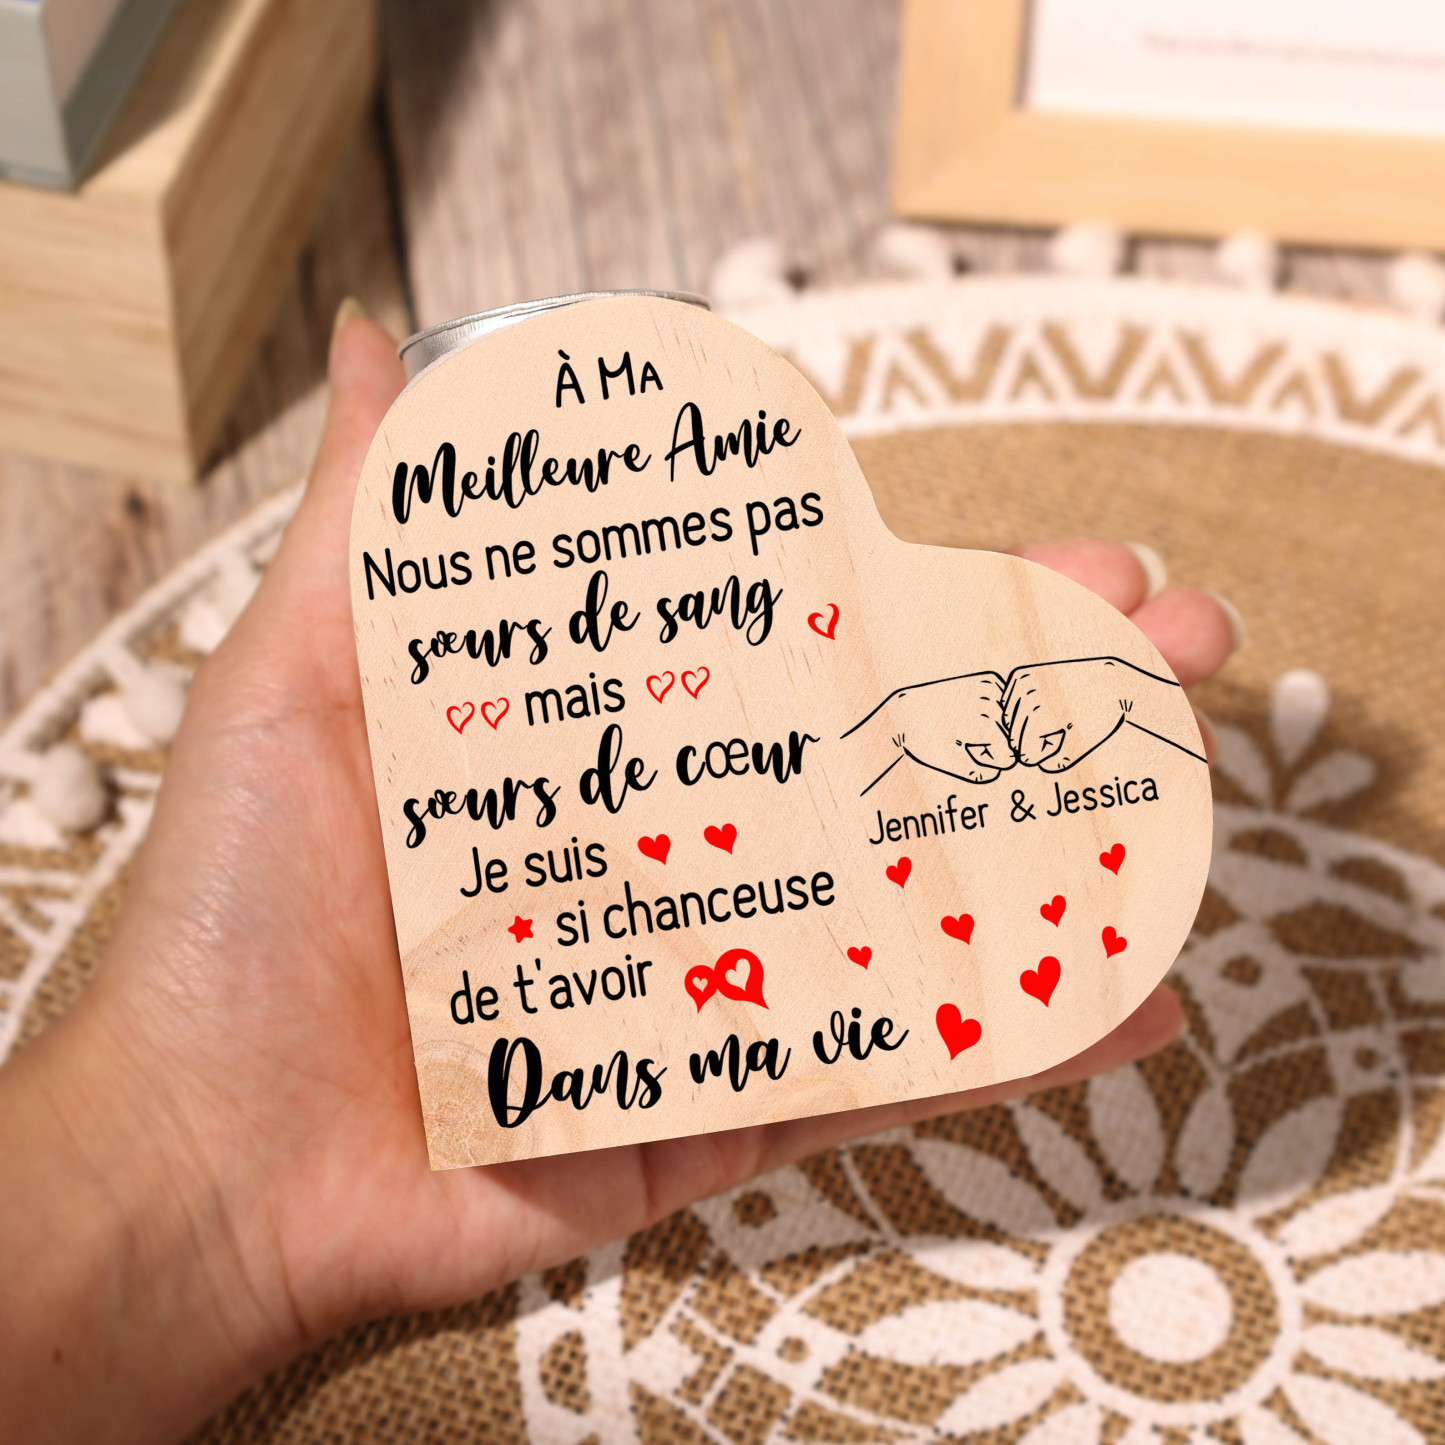 À MA
Meilleure Amie
Nous ne sommes pas
sœurs de sang
mais
sœurs de cœur
Je suis
si chanceuse
de t'avoir
Dans ma vie
Jennifer & Jessica